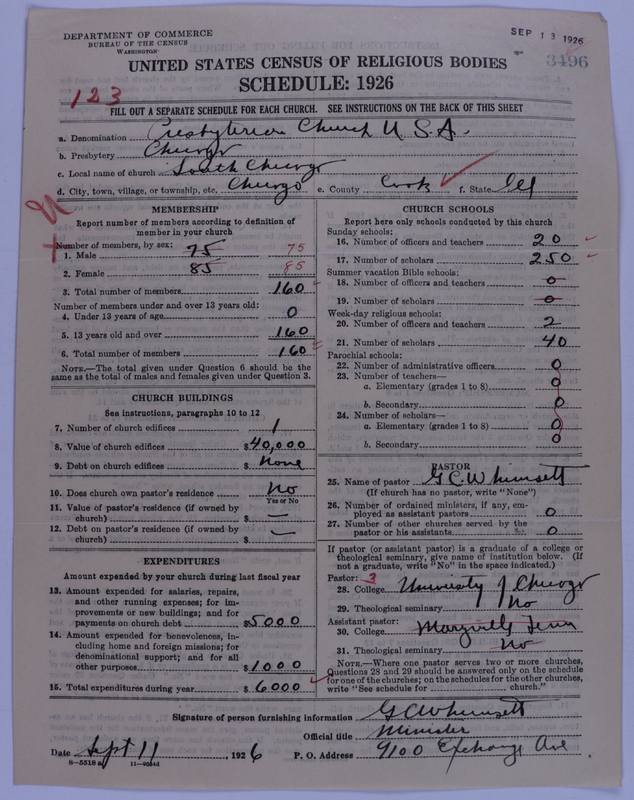 DEPARTMENT OF COMMERCE
BUREAU OF THE CENSUS
WASHINGTON
SEP 13 1926
3496
UNITED STATES CENSUS OF RELIGIOUS BODIES
SCHEDULE: 1926
123
FILL OUT A SEPARATE SCHEDULE FOR EACH CHURCH. SEE INSTRUCTIONS ON THE BACK OF THIS SHEET
a. Denomination Presbyterian Church U.S.A.
b. Presbytery Chicago
c. Local name of church South Chicago
d. City, town, village, or township, etc. Chicago e. County Cook f. State Ill
MEMBERSHIP
Report number of members according to definition of
member in your church
Number of members, by sex:
1. Male 75 75
2. Female 85 85
3. Total number of members 160
Number of members under and over 13 years old:
4. Under 13 years of age 0
5. 13 years old and over 160
6. Total number of members 160
NOTE.—The total given under Question 6 should be the
same as the total of males and females given under Question 3.
CHURCH BUILDINGS
See instructions, paragraphs 10 to 12
7. Number of church edifices 1
8. Value of church edifices $40,000
9. Debt on church edifices $ None
10. Does church own pastor's residence No
Yes or No
11. Value of pastor's residence (if owned by
church) $ —
12. Debt on pastor's residence (if owned by
church) $ —
EXPENDITURES
Amount expended by your church during last fiscal year
13. Amount expended for salaries, repairs,
and other running expenses; for im-
provements or new buildings; and for
payments on church debt $5000
14. Amount expended for benevolences, in-
cluding home and foreign missions; for
denominational support; and for all
other purposes $1000
15. Total expenditures during year $6000
CHURCH SCHOOLS
Report here only schools conducted by this church
Sunday schools:
16. Number of officers and teachers 20
17. Number of scholars 250
Summer vacation Bible schools:
18. Number of officers and teachers 0
19. Number of scholars 0
Week-day religious schools:
20. Number of officers and teachers 2
21. Number of scholars 40
Parochial schools:
22. Number of administrative officers 0
23. Number of teachers—
a. Elementary (grades 1 to 8) 0
b. Secondary 0
24. Number of scholars—
a. Elementary (grades 1 to 8) 0
b. Secondary 0
PASTOR
25. Name of pastor G C Whimsett
(If church has no pastor, write "None")
26. Number of ordained ministers, if any, em-
ployed as assistant pastors 0
27. Number of other churches served by the
pastor or his assistants 0
If pastor (or assistant pastor) is a graduate of a college or
theological seminary, give name of institution below. (If
not a graduate, write "No" in the space indicated.)
Pastor: 3
28. College University of Chicago
29. Theological seminary No
Assistant pastor:
30. College Maryville Tenn
31. Theological seminary No
NOTE.—Where one pastor serves two or more churches,
Questions 28 and 29 should be answered only on the schedule
for one of the churches; on the schedules for the other churches,
write "See schedule for church."
Signature of person furnishing information G C Whimsett
Official title Minister
Date Sept 11, 1926 P. O. Address 9100 Exchange Ave